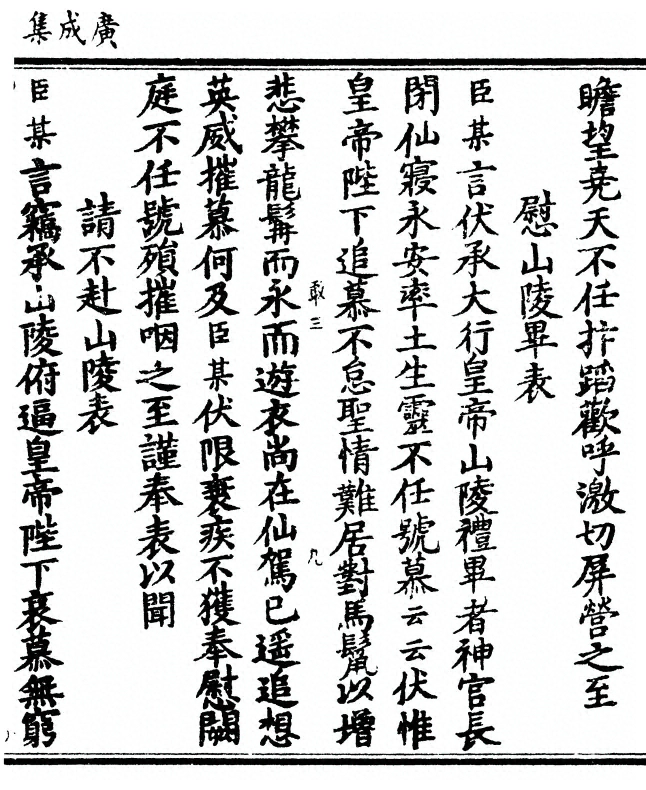 廣成集
瞻望堯天不任抃蹈歡呼激切屏營之至
慰山陵畢表
臣某言伏承大行皇帝山陵禮畢者神宮長
閉仙寢永安率土生靈不任號慕云云伏惟
皇帝陛下追慕不怠聖情難居對馬鬣以增
敢三 九
悲攀龍髯而永而遊衣尚在仙駕已遥追想
英威摧慕何及臣某伏限衰疾不獲奉慰闕
庭不任號殞摧咽之至謹奉表以聞
請不赴山陵表
臣某言竊承山陵俯逼皇帝陛下哀慕無窮